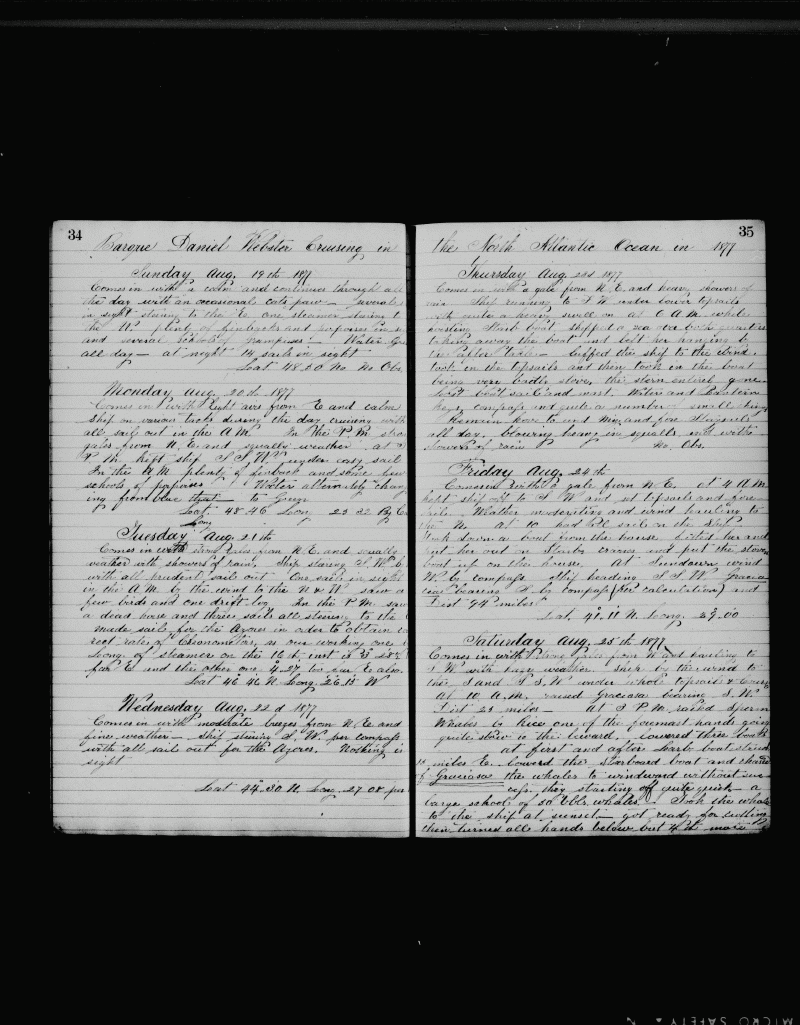 34
Barque Daniel Webster Cruising in
Sunday Aug. 19th 1877
Comes in with a calm and continues through all
the day with an occasional cats paw — Several
in sight steering to the E. one steamer steering
the W. plenty of finbacks and porpoises in
and several schools of grampuses — Water
all day — at night 14 sails in sight
Lat 48.50 No. No Obs.
Monday Aug. 20th 1877
Comes in with light airs from E and calm
Ship on various tacks during the day cruising with
all sail out in the A.M. In the P.M.
gales from N.E. and squally weather at
P.M. kept ship S.S.W. under easy sail
In the A.M. plenty of finback and some
schools of porpoises Water alternately chang
ing from blue that to Green
Lat. 48.46 Long. 23 32 By
Long
Tuesday Aug. 21th
Comes in with from N.E. and squally
weather with showers of rain, Ship steering S.W.
with all prudent sails out One sail in sight
in the A.M. by the wind to the N & W saw a
few birds and one drift log In the P.M. saw
a dead horse and three sails all steering to the
made sail for the Azores in order to obtain
rect rate of Cronometer, as one working one
Long. of steamer on the 16th inst is 3° 28'
far E and this other one 4.27 too far E also.
Lat 46 46 N Long. 26.15 W
Wednesday Aug. 22d 1877
Comes in with moderate breezes from N.E. and
fine weather — Ship steering S.W. per compass
with all sail out for the Azores. Nothing in
sight
Lat 44.30 N. Long. 27.08 per
35
the North Atlantic Ocean in 1877
Thursday Aug. 23d 1877
Comes in with a gale from N.E. and heavy showers of
rain Ship running to S W under lower topsails
with quite a heavy swell on at 6 A.M. while
hoisting Starb boat, shipped a sea over both quarters
taking away the boat and left her hanging by
the after tackle — Luffed the ship to the wind,
took in the topsails and then took in the boat
being very badly stove, the stern entirely gone
lost boat sail and mast, Water and Lantern
kegs, compass and quite a number of small things
Remain hove to und Main and fore Staysails
all day, blowing heavy in squalls and with
showers of rain No, Obs.
Friday Aug. 24th
Comes in with a gale from N.E. at 4 A.M.
kept ship off to S W and set topsails and fore
sail. Weather moderating and wind hauling to
the N. At 10 had all sail on the ship
Took down a boat from the house fitted her and
put her out on Starb cranes and put the stove
boat up on the house. At Sundown wind
W by compass Ship heading S.S.W. Gracio
sa bearing S. by compass (Per calculation) and
Dist 94 miles
Lat. 41.11 N. Long. 29.00
Saturday Aug. 25th 1877
Comes in with from N and hauling to
S W with hazy weather. Ship by the wind to
the S and S.S.W. under whole topsails &
At 10, A.M. raised Graciosa bearing S.W.
Dist 25 miles — At 5 P.M. raised Sperm
Whales to lee one of the foremast hands going
quite slow to the leward. Lowered three boats
at first and after Larb boat struck
15 miles E. lowered the starboard boat and chased
of Graciosa the whales to windward without suc
cess, they starting off quite quick — a
large school of 50 bbls. whales. Took the whale
to the ship at sunset got ready for cutting
then turned all hands below but 4th mate